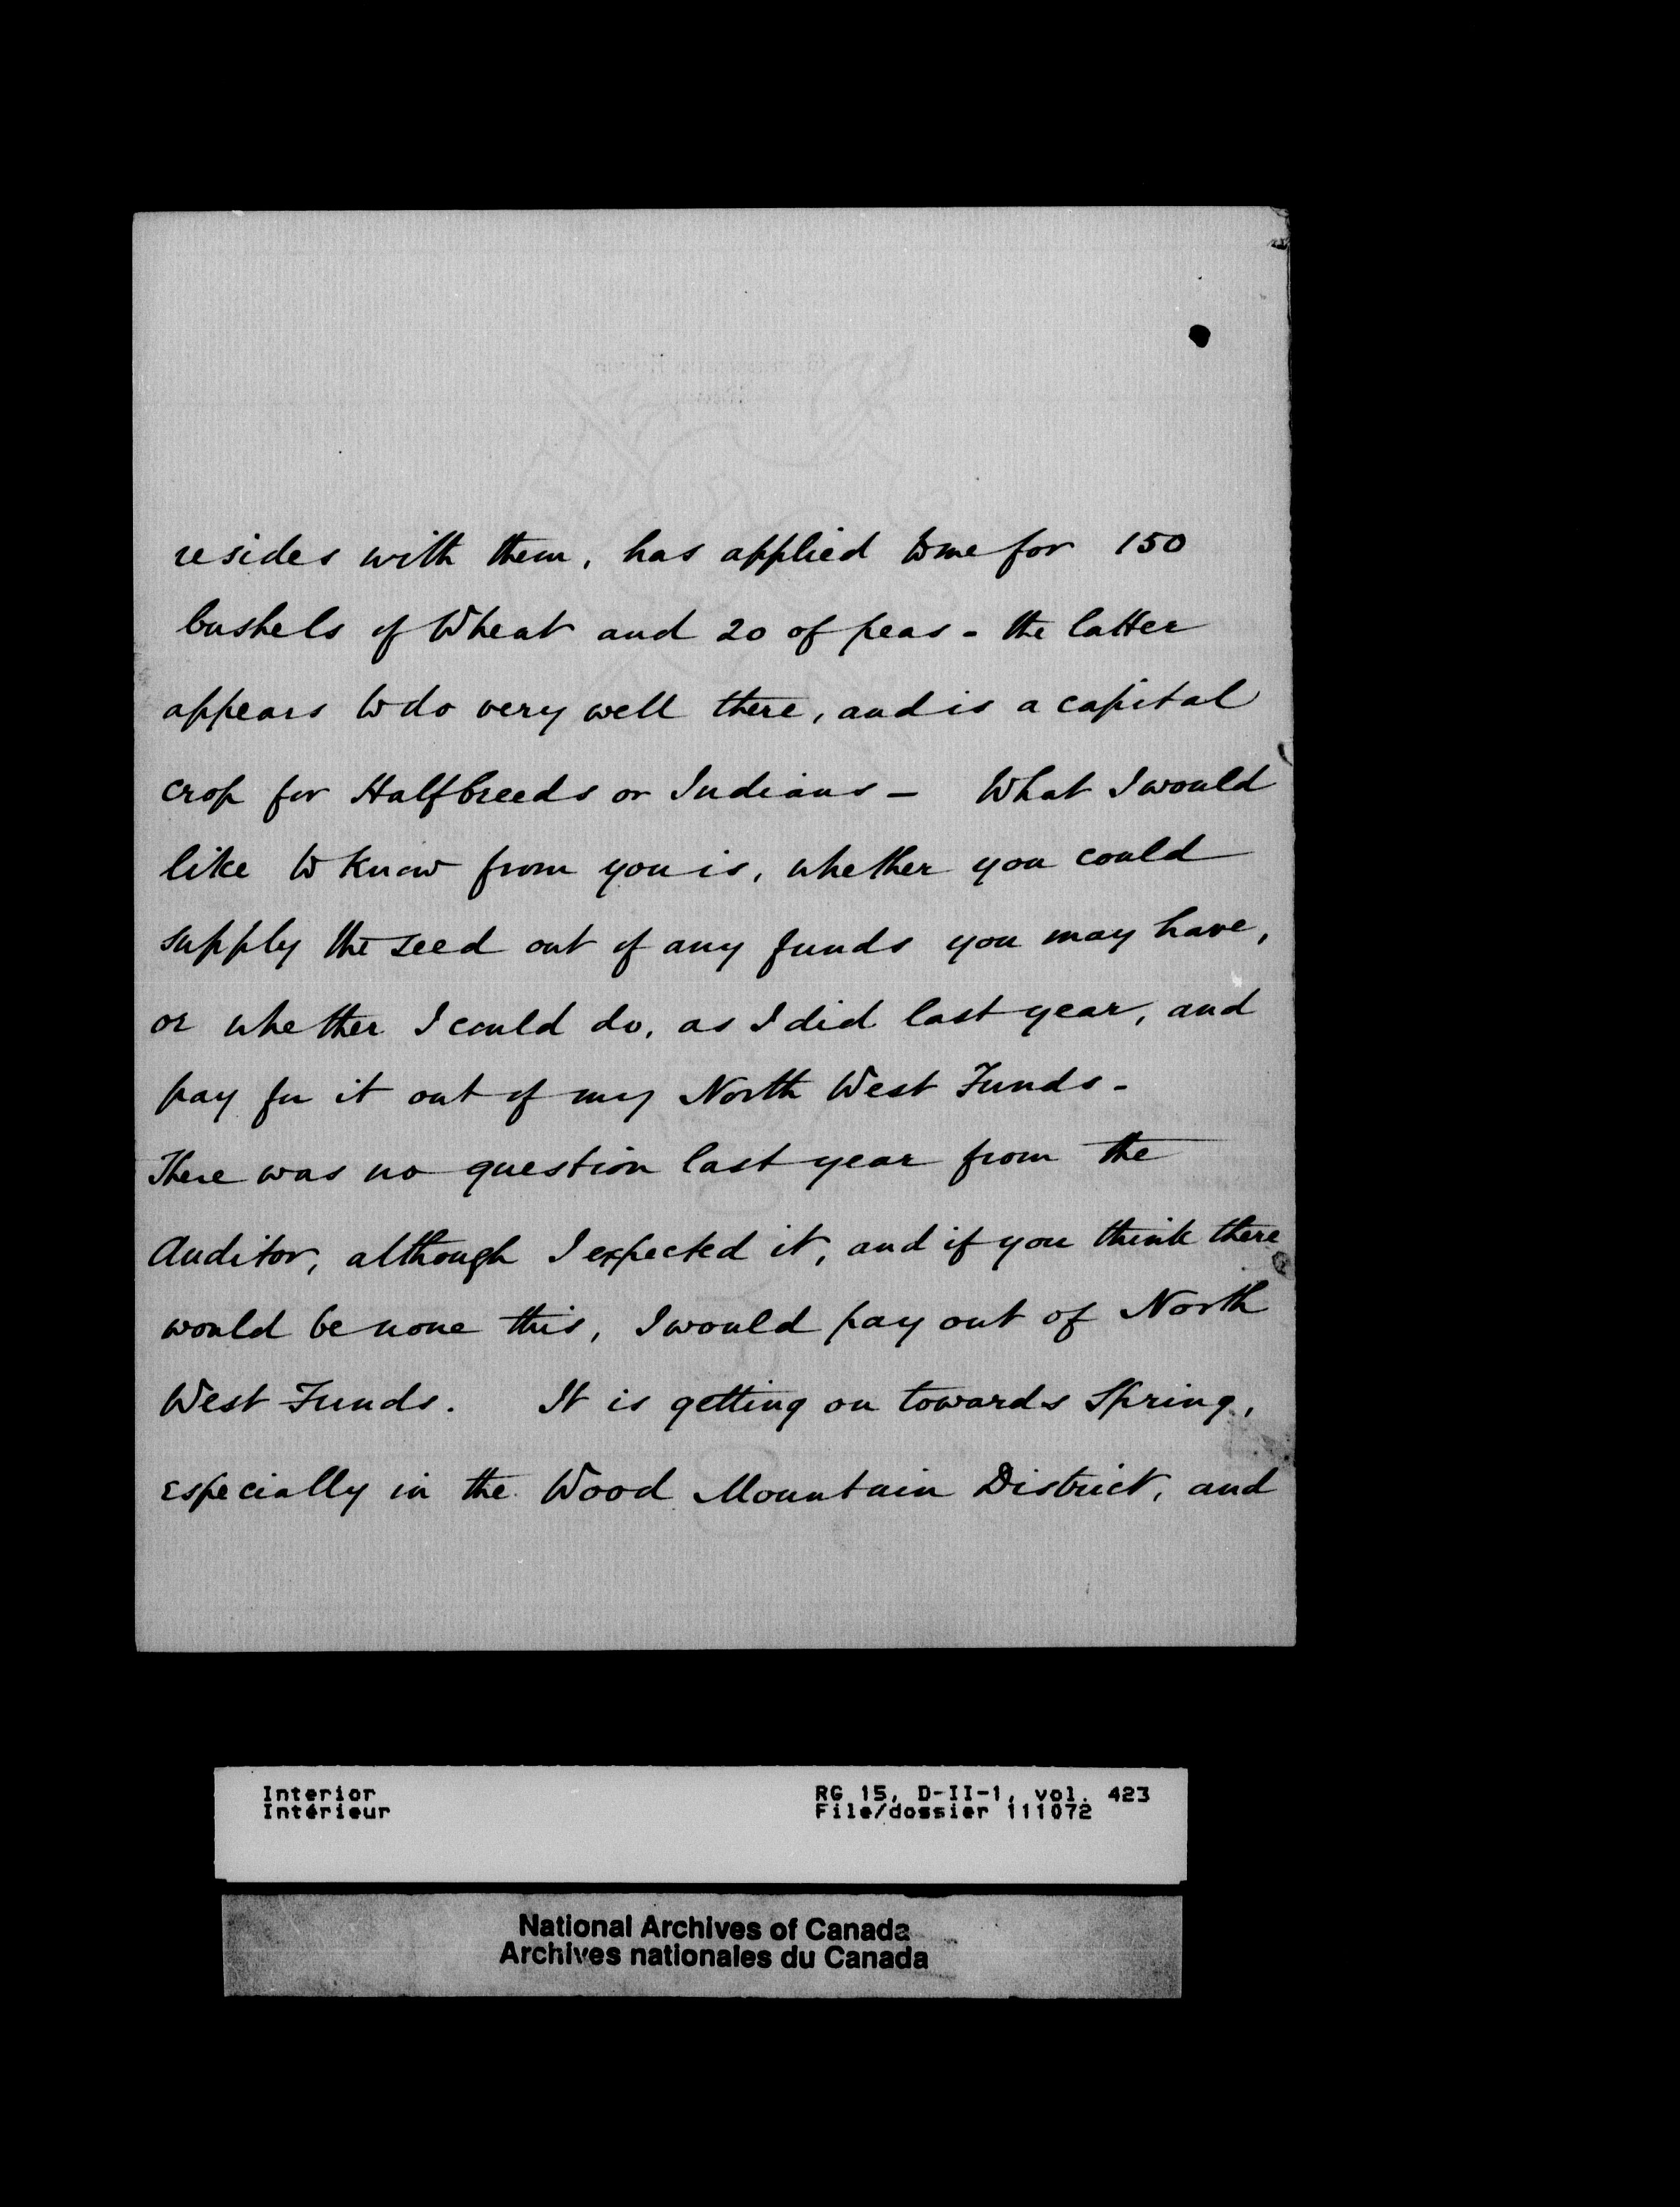 resides with them, has applied to me for 150
bushels of Wheat and 20 of peas - the latter
appears to do very well there, and is a capital
crop for Halfbreeds or Indians - What I would
like to know from you is, whether you could
supply the seed out of any funds you may have,
or whether I could do, as I did last year, and
pay for it out of my North West Funds -
There was no question last year from the
Auditor, although I expected it, and if you think there
would be none this, I would pay out of North
West Funds. It is getting on towards Spring,
especially in the Wood Mountain District, and
Interior RG 15, D-II-1, vol. 423
Intérieur File/dossier 111072
National Archives of Canada
Archives nationales du Canada